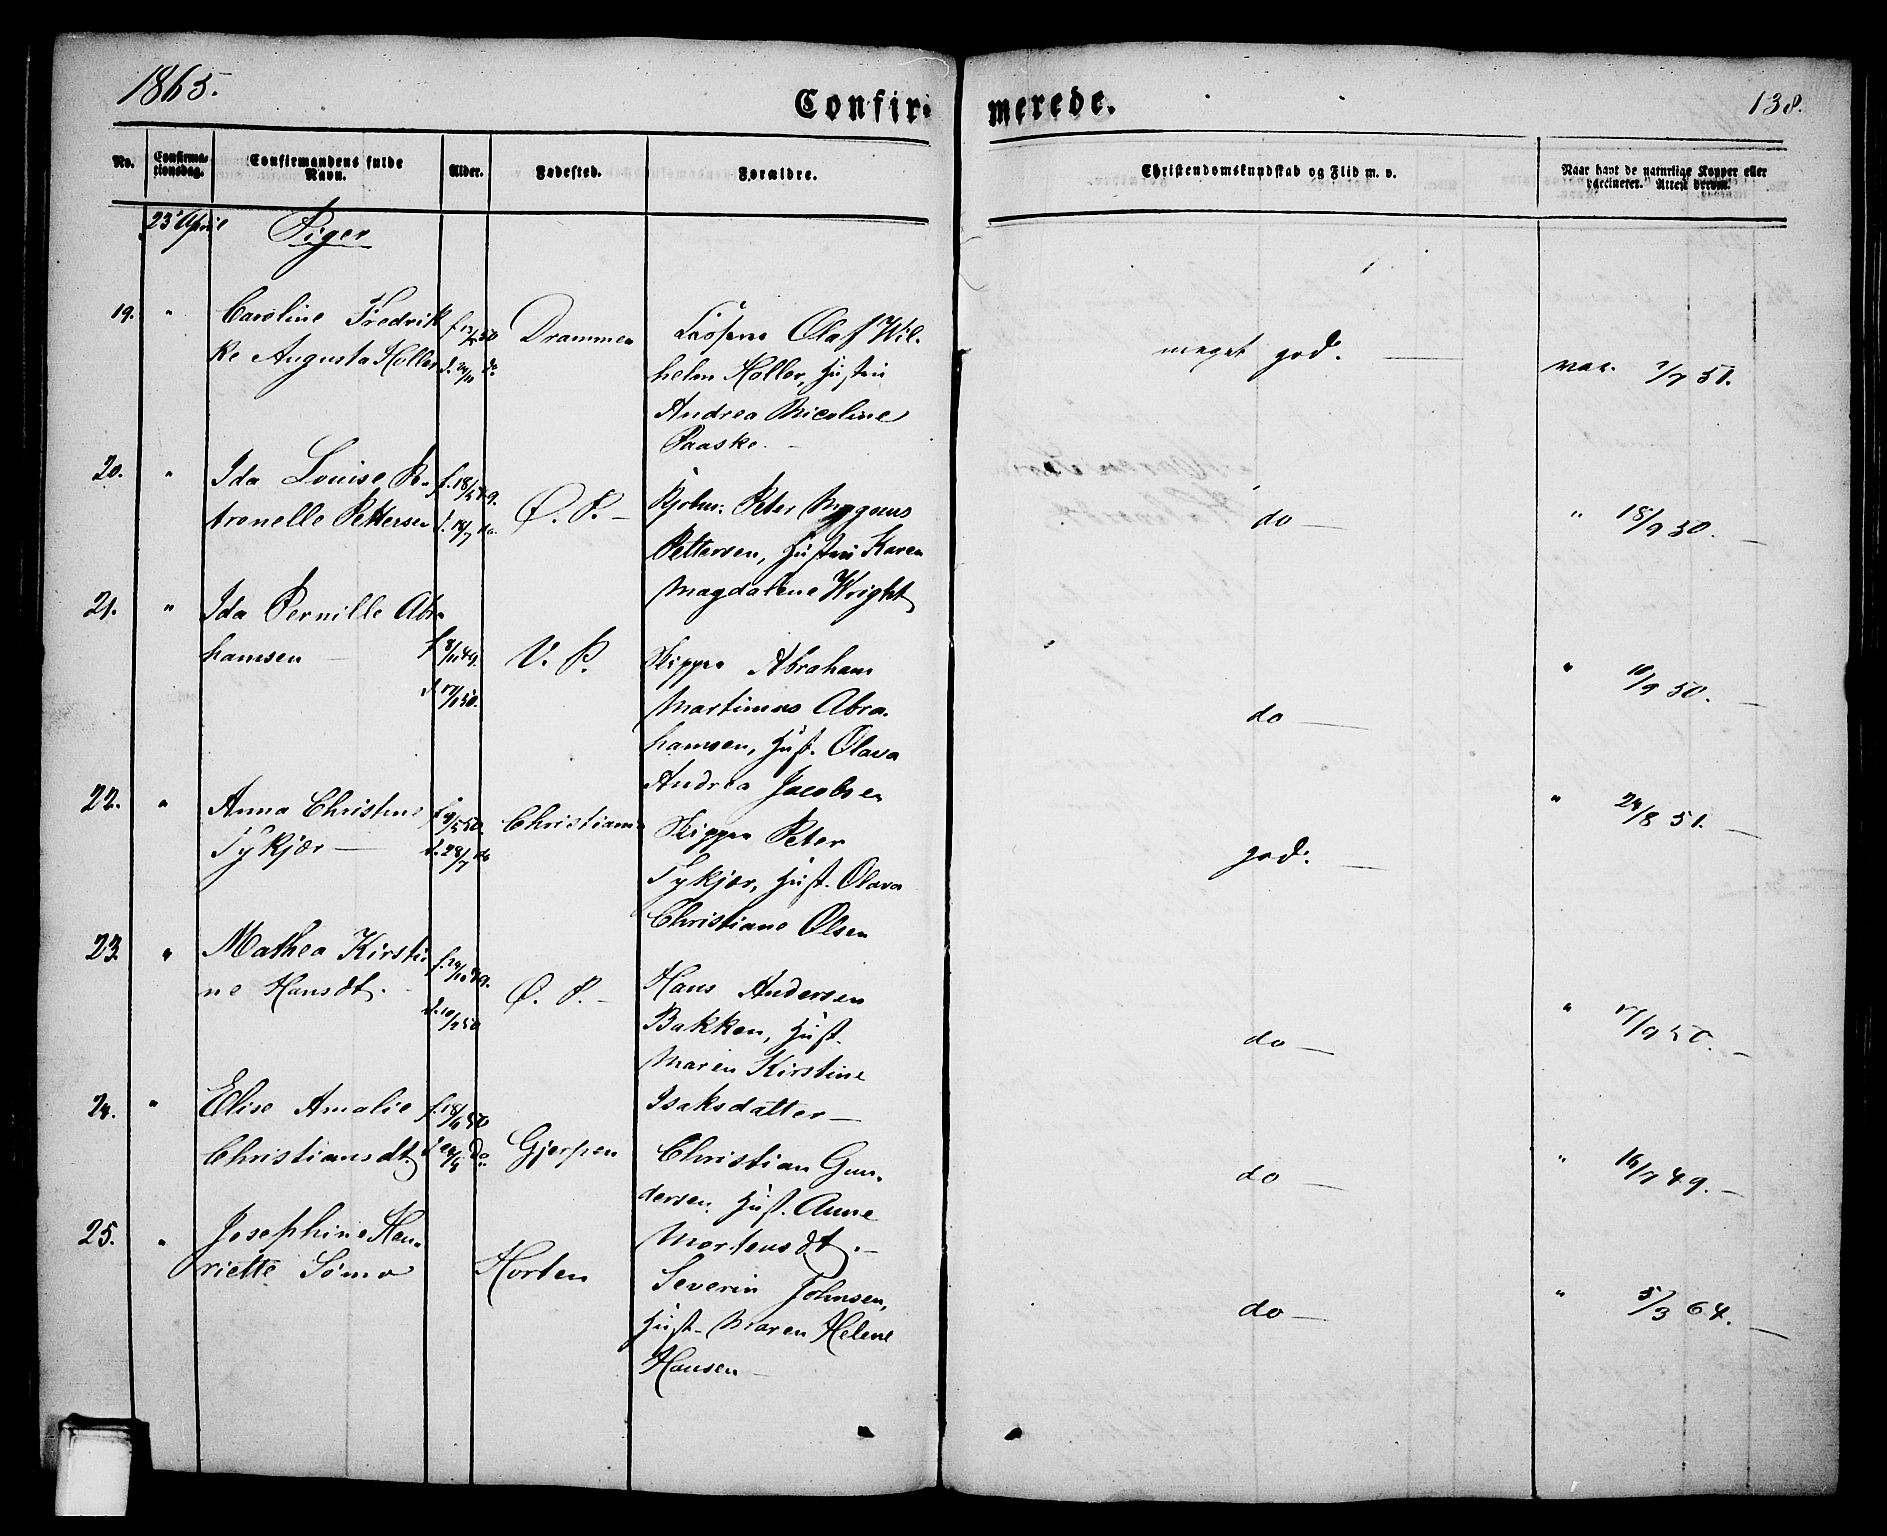 1865.
Confir- merede.
138.
No.
Confirma-
tionsdag.
Confirmandens fulde
Navn.
Alder.
Fødested.
Forældre.
Christendomskundskab og Flid m. v.
Naar havt de naturlige Kopper eller
vaccineret. Attest derom.
23 April Piger
19. " Caroline Fredrik-
ke Augusta Høller
Drammen
Olaf Wil-
helm Høller, Hustru
Andrea Nicoline
Paaske.
meget god.
vac. 7/7 51.
20. " Ida Louise Pe-
tronelle Pettersen
f. 18/5 49.
d. 18/7 do
Ø. P. -
Peter
Pettersen, Hustru Karen
Magdalene Wright
do
" 18/9 50.
21. " Ida Pernille Abra-
hamsen
V. P.
Skipper Abraham
Martinius Abra-
hamsen, Hust. Olava
Andrea Jacobsen
do
" 10/9 50.
22. " Anna Christine
Tykjær
f. 9/5 50.
d. 28/7 do
Christiania
Skipper Peter
Tykjær, Hust. Olava
Christiane Olsen
god.
" 24/8 51.
23. " Mathea Kirsti-
ne Hansdt.
Ø. P. -
Hans Andersen
Bakken, Hust.
Maren Kirstine
Isaksdatter
do
" 17/9 50.
24. " Elise Amalie
Christiansdt
Gjerpen
Christian Gun-
dersen, Hust. Anne
Mortensdt.
do
" 16/7 49.
25. " Josephine Hen-
riette Sømo
Horten
Severin Johnsen,
Hust. Maren Helene
Hansen
do
" 5/3 64.